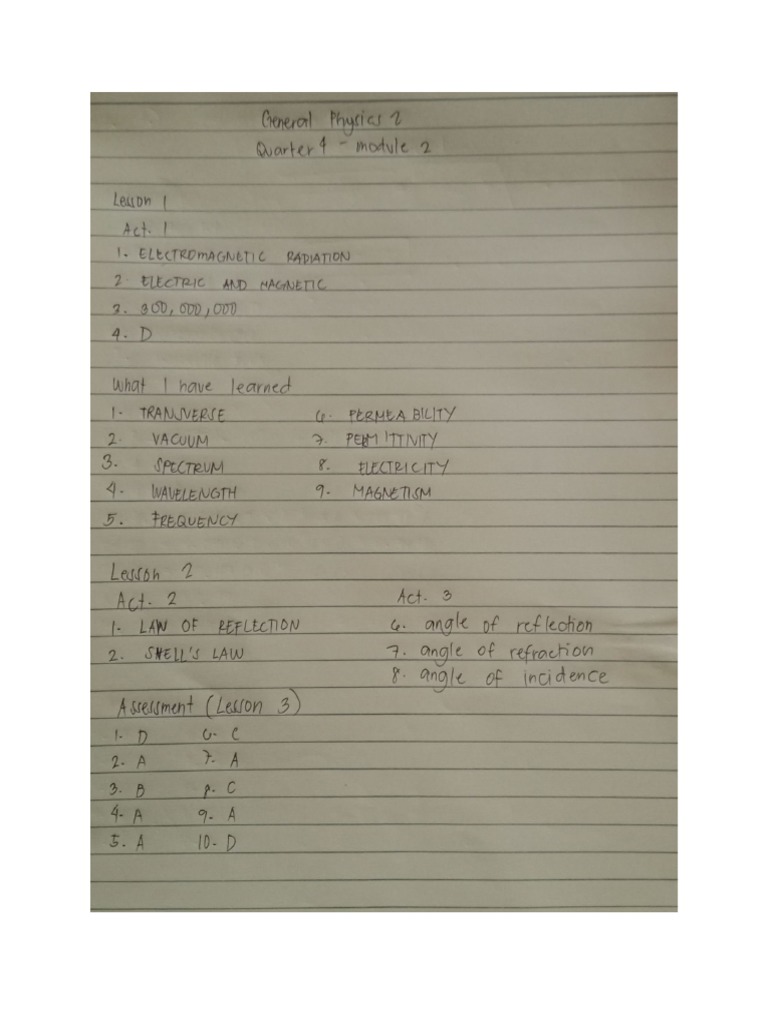 General Physics 2
Quarter 4 - module 2
Lesson 1
Act. 1
1. ELECTROMAGNETIC RADIATION
2. ELECTRIC AND MAGNETIC
3. 300,000,000
4. D
What I have learned
1. TRANSVERSE 6. PERMEABILITY
2. VACUUM 7. PERMITTIVITY
3. SPECTRUM 8. ELECTRICITY
4. WAVELENGTH 9. MAGNETISM
5. FREQUENCY
Lesson 2
Act. 2 Act. 3
1. LAW OF REFLECTION 6. angle of reflection
2. SNELL'S LAW 7. angle of refraction
8. angle of incidence
Assessment (Lesson 3)
1. D 6. C
2. A 7. A
3. B 8. C
4. A 9. A
5. A 10. D